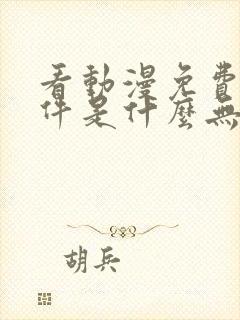 看動漫免費
件是什麼無
胡兵